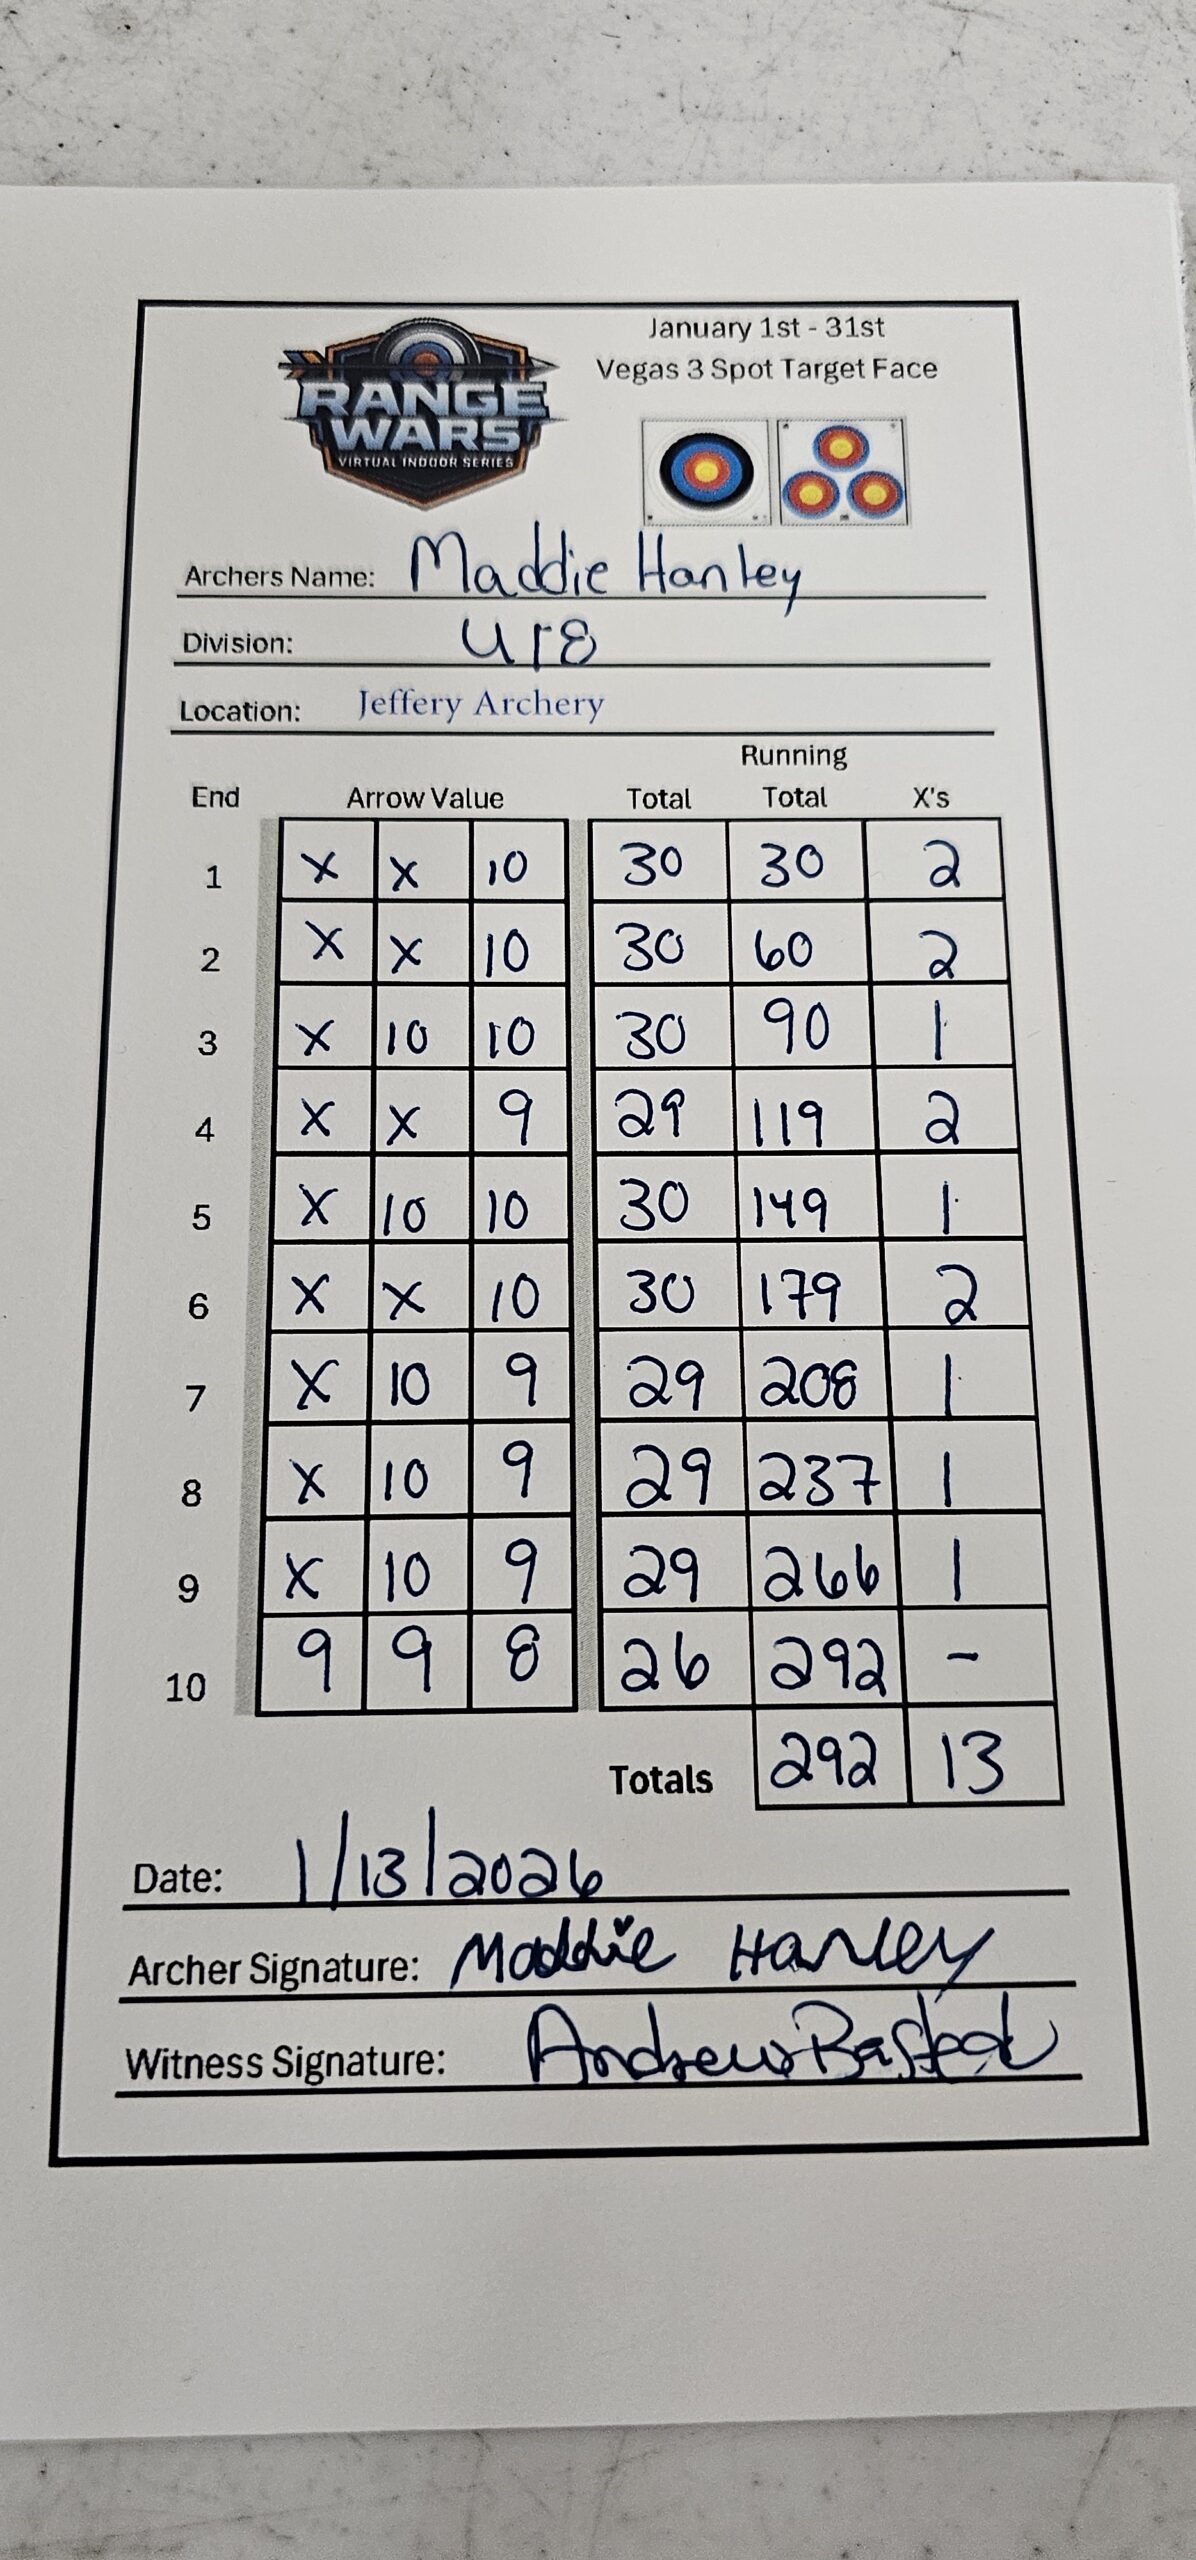 January 1st - 31st
Vegas 3 Spot Target Face
RANGE
WARS
VIRTUAL INDOOR SERIES
Archers Name: Maddie Hanley
Division: U18
Location: Jeffery Archery
Running
End Arrow Value Total Total X's
1 X X 10 30 30 2
2 X X 10 30 60 2
3 X 10 10 30 90 1
4 X X 9 29 119 2
5 X 10 10 30 149 1
6 X X 10 30 179 2
7 X 10 9 29 208 1
8 X 10 9 29 237 1
9 X 10 9 29 266 1
10 9 9 8 26 292 -
Totals 292 13
Date: 1/13/2026
Archer Signature: Maddie Hanley
Witness Signature: Andrew